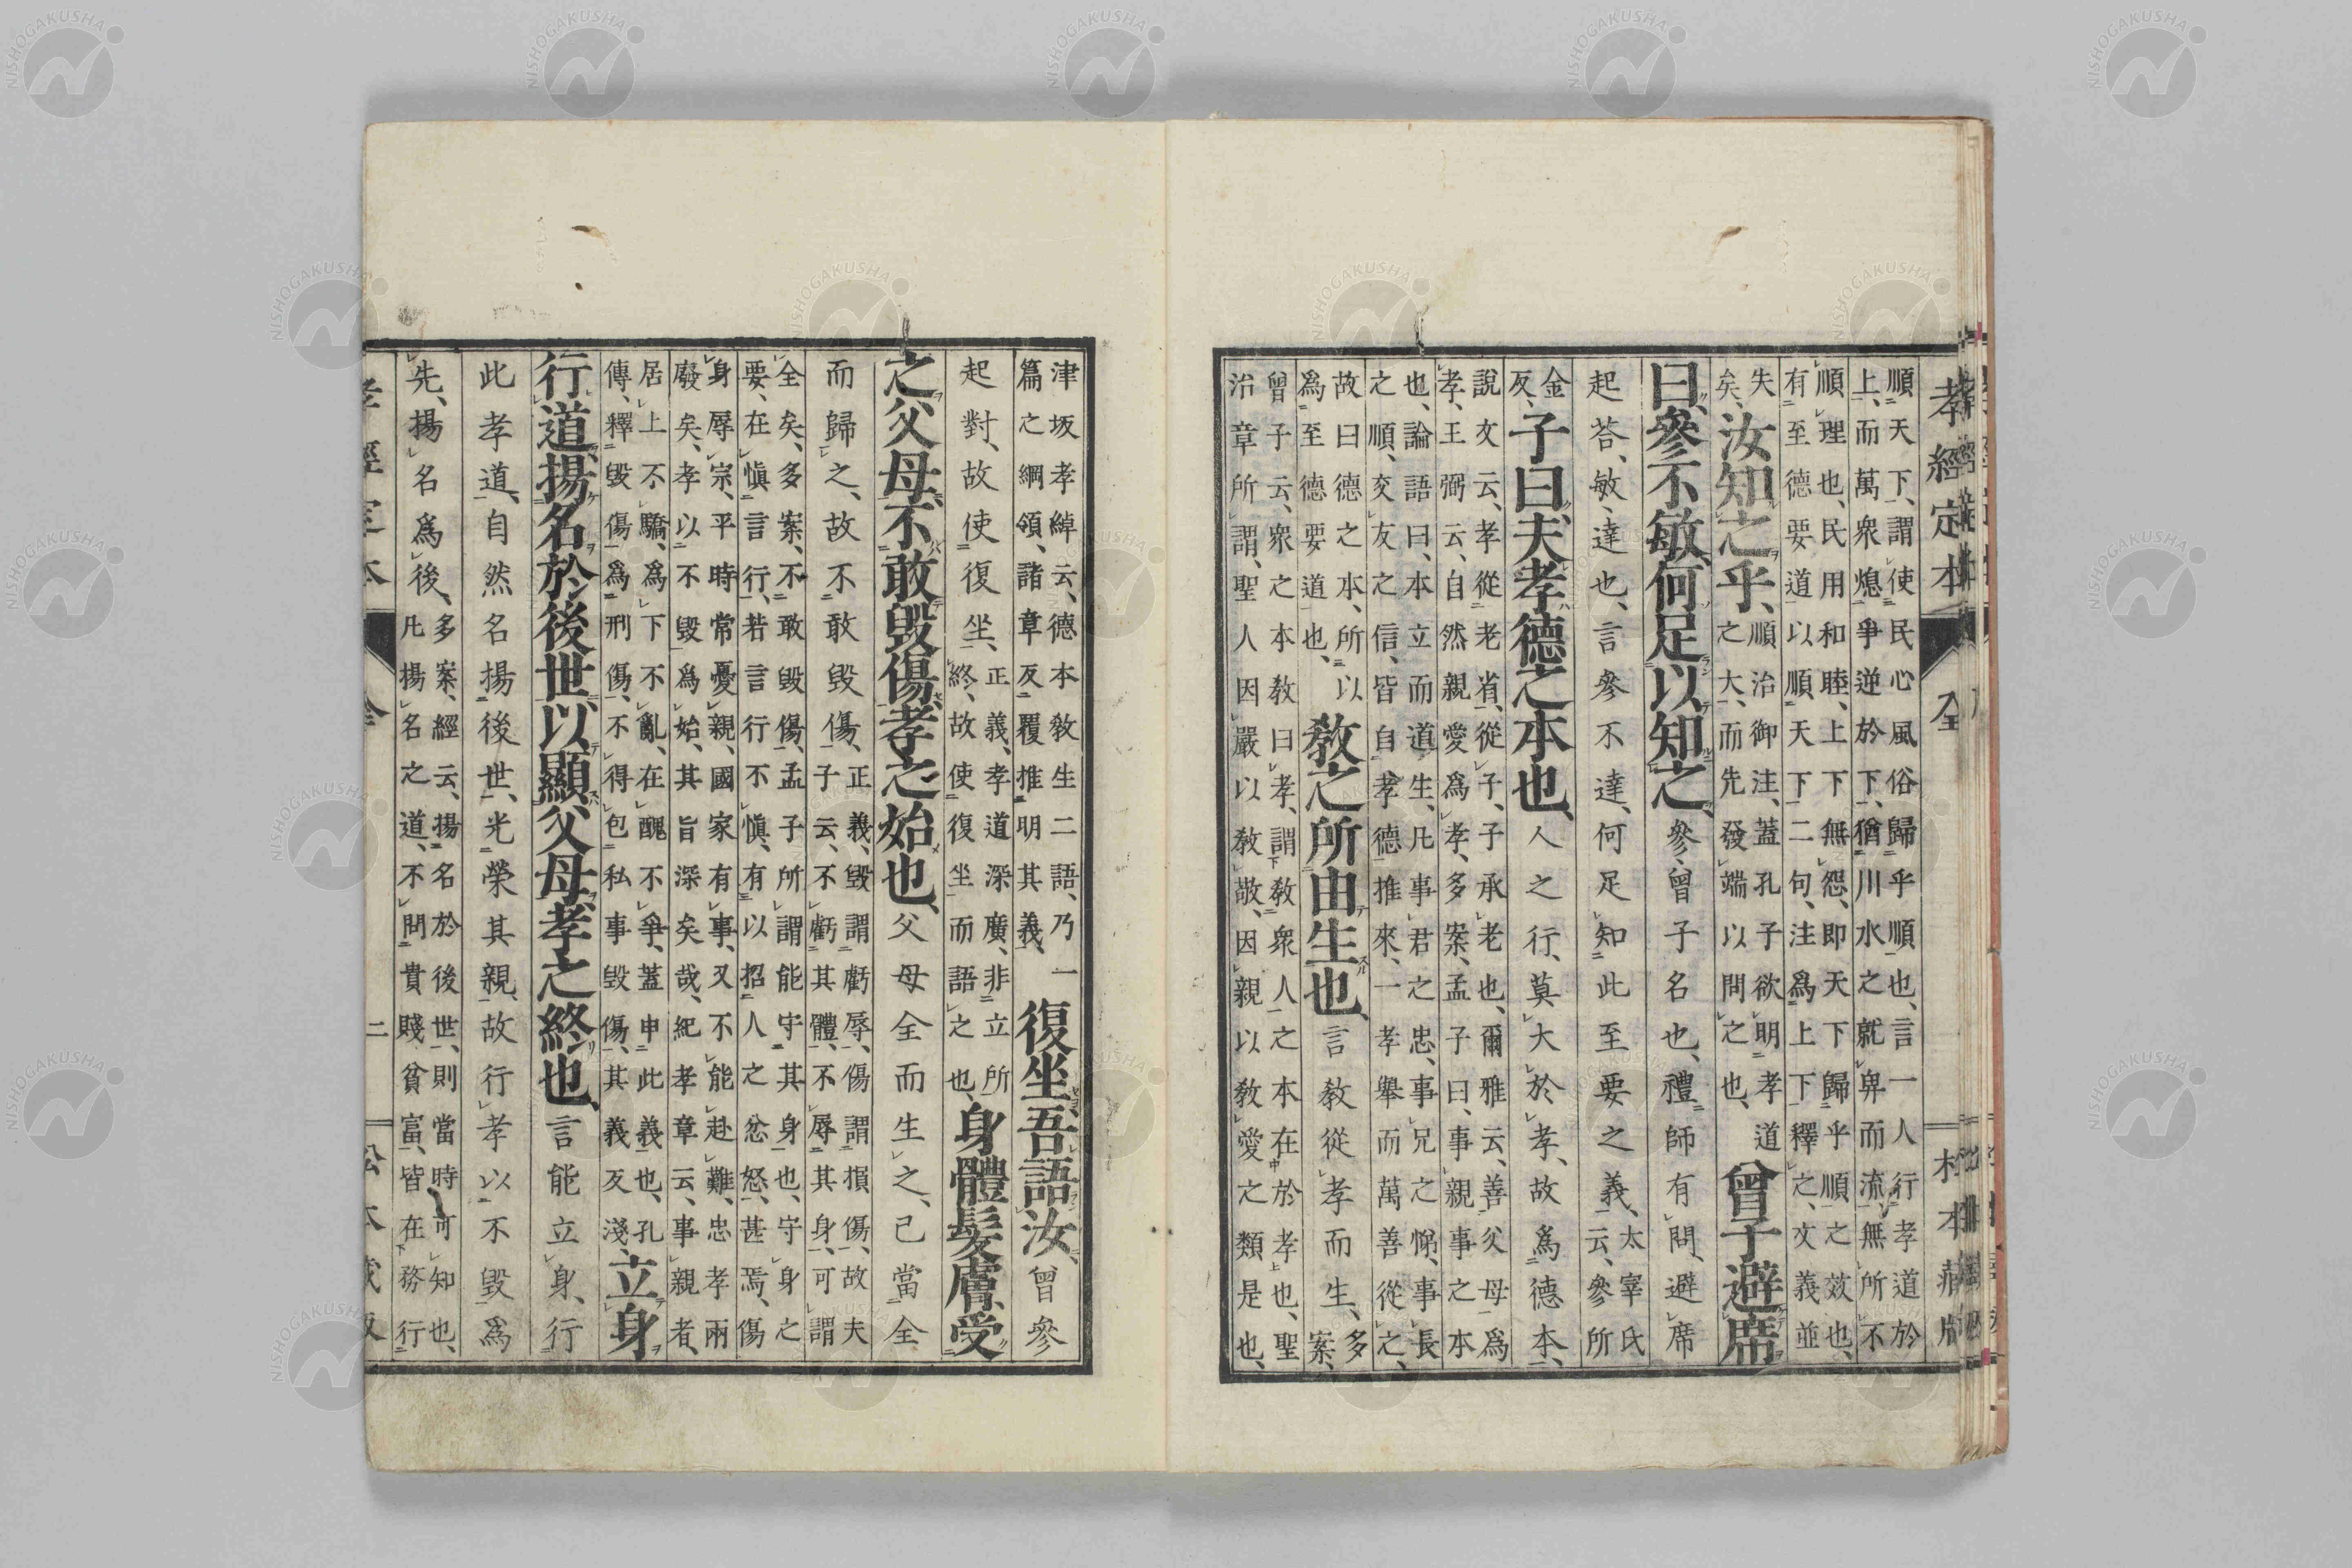 孝經定本 全
順天下、謂使民心風俗歸乎順也、言一人行孝道於
上、而萬衆熄爭逆於下、猶川水之就卑而流、無所不
順理也、民用和睦、上下無怨、即天下歸乎順之效也、
有至德要道以順天下二句、注爲上下釋之、文義並
失
矣、
汝知之乎、
順治御注、蓋孔子欲明孝道
之大、而先發端以問之也、
曾子避席
曰、參不敏、何足以知之、參、曾子名也、禮師有問、避席
起答、敏、達也、言參不達、何足知此至要之義、
太宰氏
云、參所
金
反、
子曰、夫孝德之本也、人之行、莫大於孝、故爲德本、
說文云、孝從老省、從子、子承老也、爾雅云、善父母爲
孝、王弼云、自然親愛爲孝、多案、孟子曰、事親事之本
也、論語曰、本立而道生、凡事君之忠、事兄之悌、事長
之順、交友之信、皆自孝德推來、一孝舉而萬善從之、
故曰德之本、所以
爲至德要道也、
教之所由生也、言教從孝而生、
多
案、
曾子云、衆之本教曰孝、謂教衆人之本在於孝也、聖
治章所謂、聖人因嚴以教敬、因親以教愛之類是也、
津坂孝綽云、德本教生二語、乃一
篇之綱領、諸章反覆推明其義、
復坐、吾語汝、曾參
起對、故使復坐、
正義、孝道深廣、非立所
終、故使復坐而語之也、
身體髮膚、受
之父母、不敢毀傷、孝之始也、父母全而生之、己當全
而歸之、故不敢毀傷、
正義、毀謂虧辱、傷謂損傷、故夫
子云、不虧其體、不辱其身、可謂
全矣、多案、不敢毀傷、孟子所謂能守其身也、守身之
要、在愼言行、若言行不愼、有以招人之忿怒、甚焉、傷
身辱宗、平時常憂親、國家有事、又不能赴難、忠孝兩
廢矣、孝以不毀爲始、其旨深矣哉、紀孝章云、事親者、
居上不驕、爲下不亂、在醜不爭、蓋申此義也、孔
傳、釋毀傷爲刑傷、不得包私事毀傷、其義反淺、
立身
行道、揚名於後世、以顯父母、孝之終也、言能立身、行
此孝道、自然名揚後世、光榮其親、故行孝以不毀爲
先、揚名爲後、
多案、經云、揚名於後世、則當時可知也、
凡揚名之道、不問貴賤貧富、皆在務行
二
NISHOGAKUSHA